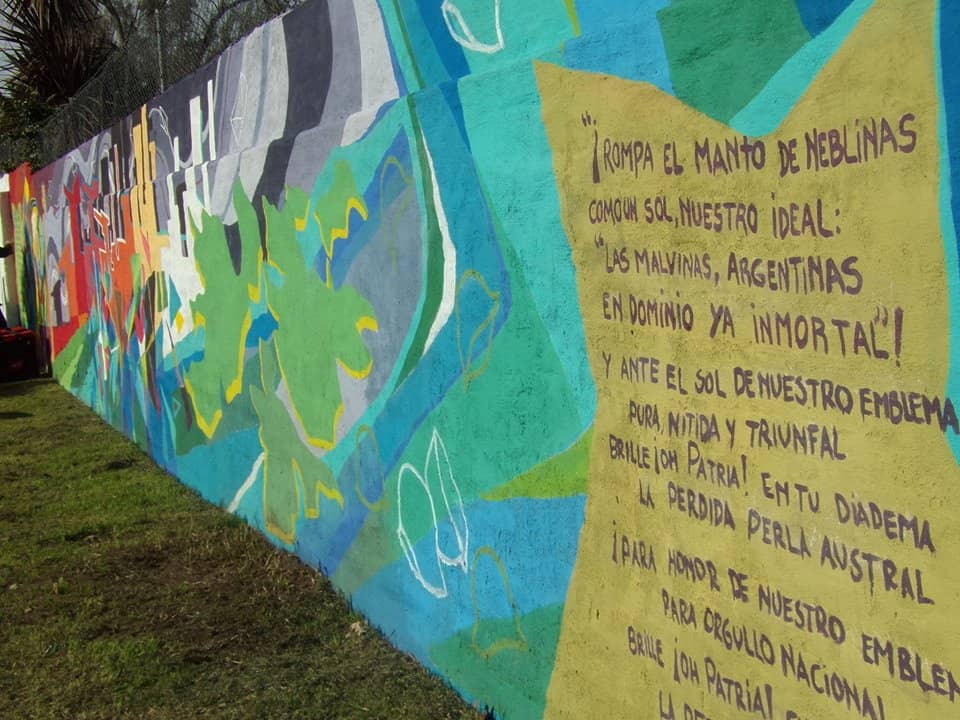 "¡ROMPA EL MANTO DE NEBLINAS
COMO UN SOL, NUESTRO IDEAL:
"LAS MALVINAS, ARGENTINAS
EN DOMINIO YA INMORTAL"!
Y ANTE EL SOL DE NUESTRO EMBLEMA
PURA, NITIDA Y TRIUNFAL
BRILLE ¡OH PATRIA! EN TU DIADEMA
LA PERDIDA PERLA AUSTRAL
¡PARA HONOR DE NUESTRO EMBLEM
PARA ORGULLO NACIONAL
BRILLE ¡OH PATRIA!